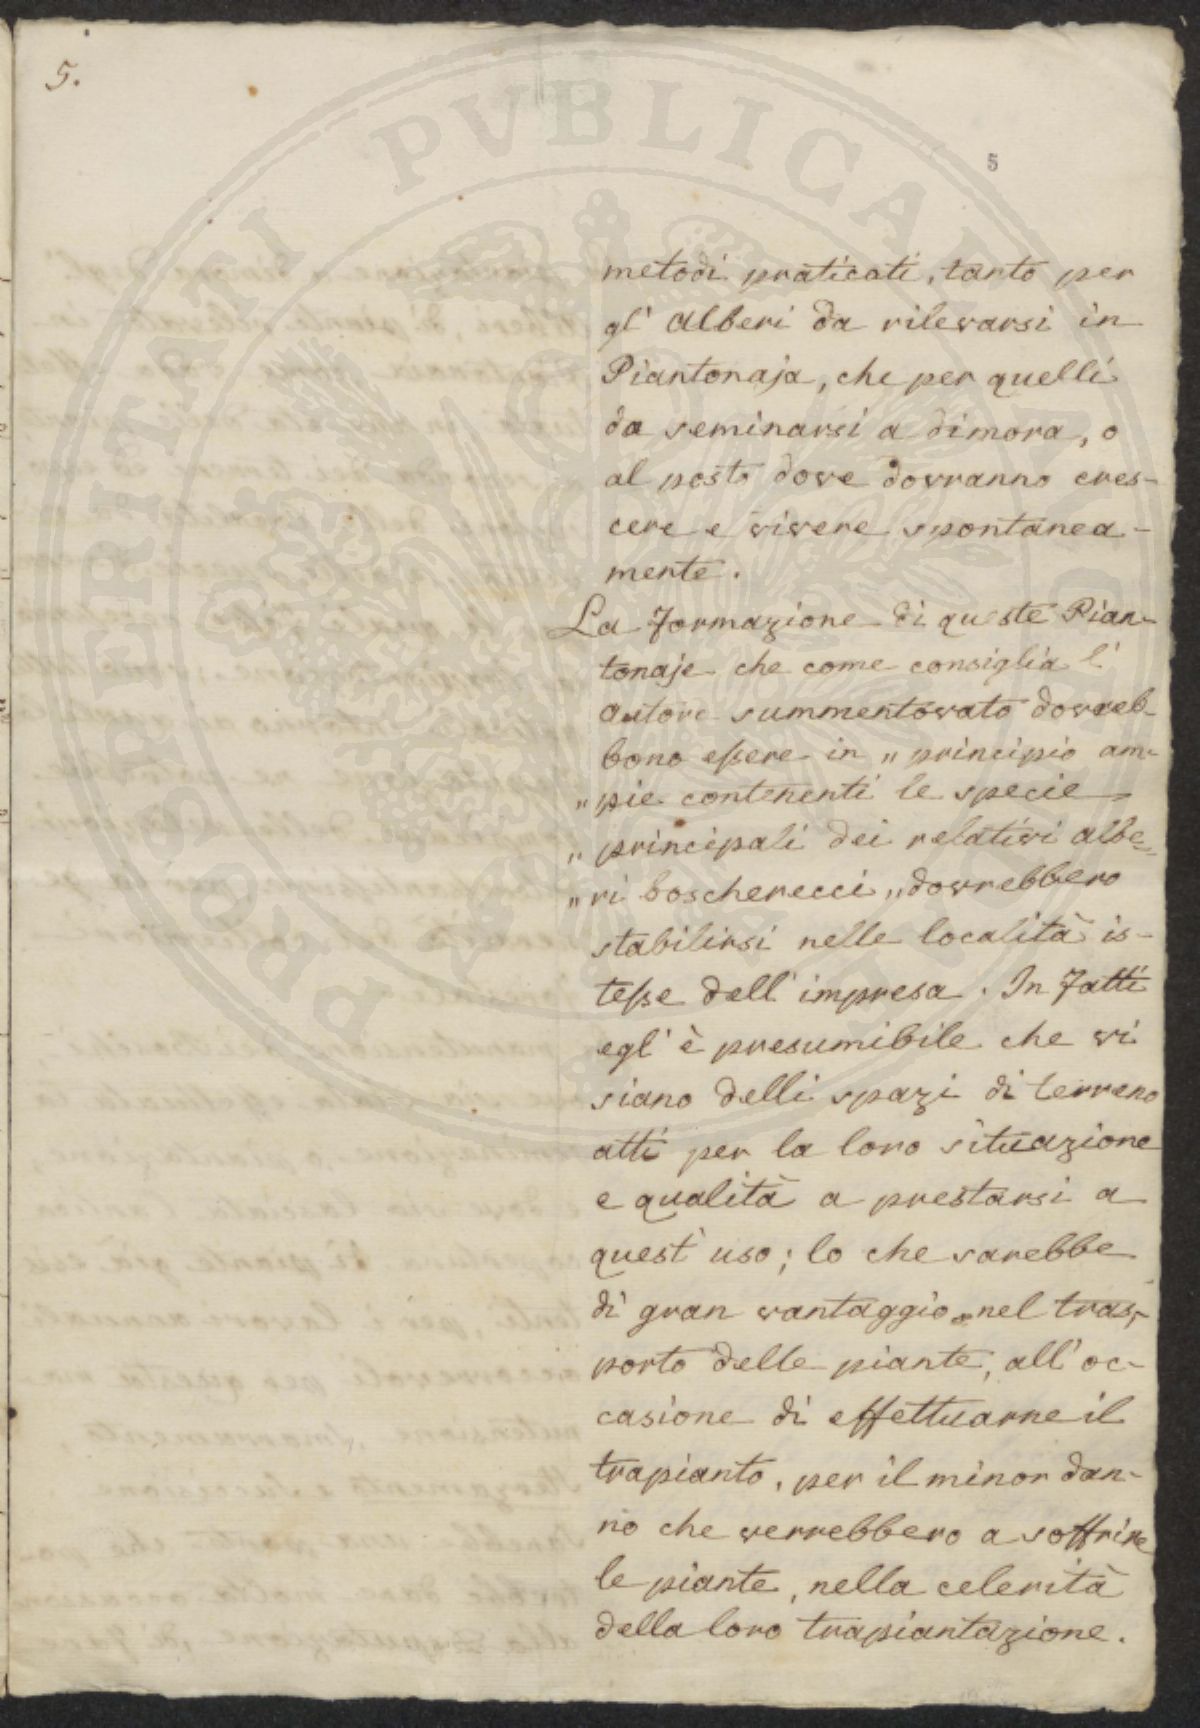 5.
5
PROSPERITATI PVBLICAE
metodi praticati, tanto per
gl' Alberi da rilevarsi in
Piantonaja, che per quelli
da seminarsi a dimora, o
al posto dove dovranno cres-
cere e vivere spontanea-
mente.
La formazione di queste Pian-
tonaje che come consiglia l'
autore summentovato dovreb-
bono eſsere in „ principio am-
„ pie contenenti le specie
„ principali dei relativi albe=
„ ri boscherecci „ dovrebbero
stabilirsi nelle località is-
teſse dell' impresa. In fatti
egl' è presumibile che vi
siano delli spazi di terreno
atti per la loro situazione
e qualità a prestarsi a
quest' uso; lo che sarebbe
di gran vantaggio nel tras-
porto delle piante, all' oc-
casione di effettuarne il
trapianto, per il minor dan-
no che verrebbero a soffrire
le piante, nella celerità
della loro trapiantazione.